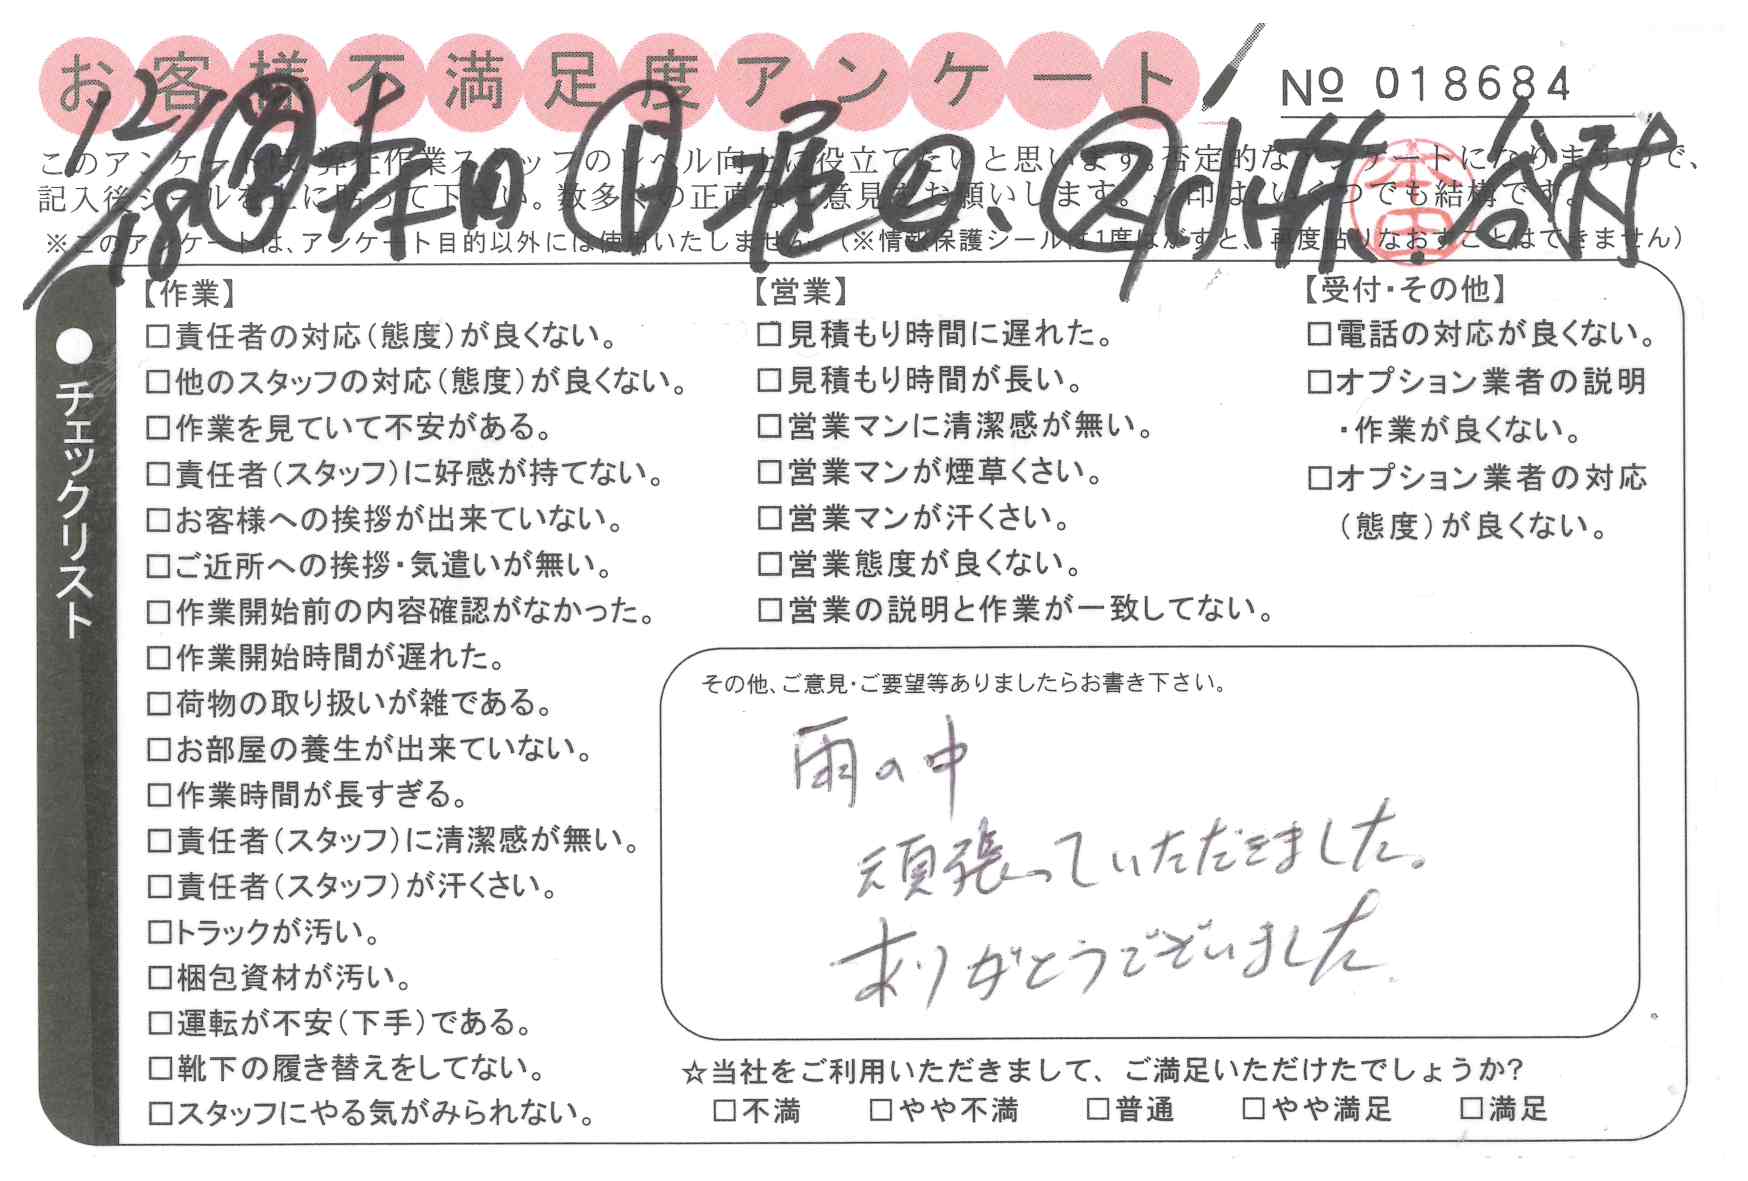 お客様不満足度アンケート
No 018684
12/18 営 本田 自 堀田、 又 小林・谷村
本田
このアンケートは、弊社作業スタッフのレベル向上に役立てたいと思います。否定的なアンケートになりますので、
記入後シールを上に貼って下さい。数多くの正直なご意見をお願いします。✓印は、いくつでも結構です。
※このアンケートは、アンケート目的以外には使用いたしません。(※情報保護シールは1度はがすと、再度貼りなおすことはできません)
●チェックリスト
【作業】
□責任者の対応(態度)が良くない。
□他のスタッフの対応(態度)が良くない。
□作業を見ていて不安がある。
□責任者(スタッフ)に好感が持てない。
□お客様への挨拶が出来ていない。
□ご近所への挨拶・気遣いが無い。
□作業開始前の内容確認がなかった。
□作業開始時間が遅れた。
□荷物の取り扱いが雑である。
□お部屋の養生が出来ていない。
□作業時間が長すぎる。
□責任者(スタッフ)に清潔感が無い。
□責任者(スタッフ)が汗くさい。
□トラックが汚い。
□梱包資材が汚い。
□運転が不安(下手)である。
□靴下の履き替えをしてない。
□スタッフにやる気がみられない。
【営業】
□見積もり時間に遅れた。
□見積もり時間が長い。
□営業マンに清潔感が無い。
□営業マンが煙草くさい。
□営業マンが汗くさい。
□営業態度が良くない。
□営業の説明と作業が一致してない。
【受付・その他】
□電話の対応が良くない。
□オプション業者の説明
・作業が良くない。
□オプション業者の対応
(態度)が良くない。
その他、ご意見・ご要望等ありましたらお書き下さい。
雨の中
頑張っていただきました。
ありがとうございました
☆当社をご利用いただきまして、ご満足いただけたでしょうか?
□不満 □やや不満 □普通 □やや満足 □満足